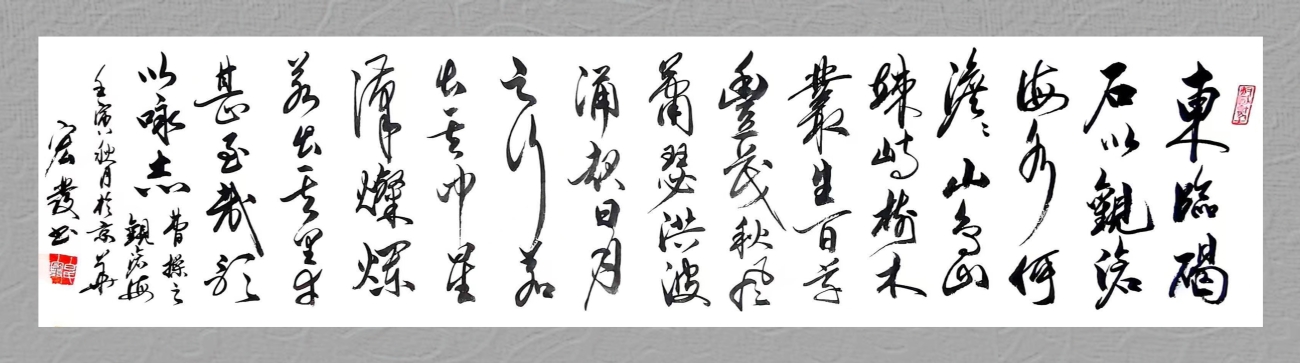 東臨碣
石以觀滄
海水何
澹々山島
竦峙樹木
叢生百草
豐茂秋風
蕭瑟洪波
涌起日月
之行若
出其中星
漢燦爛
若出其里幸
甚至哉歌
以咏志
曹操之
觀滄海
壬寅秋月於京華
宏發书